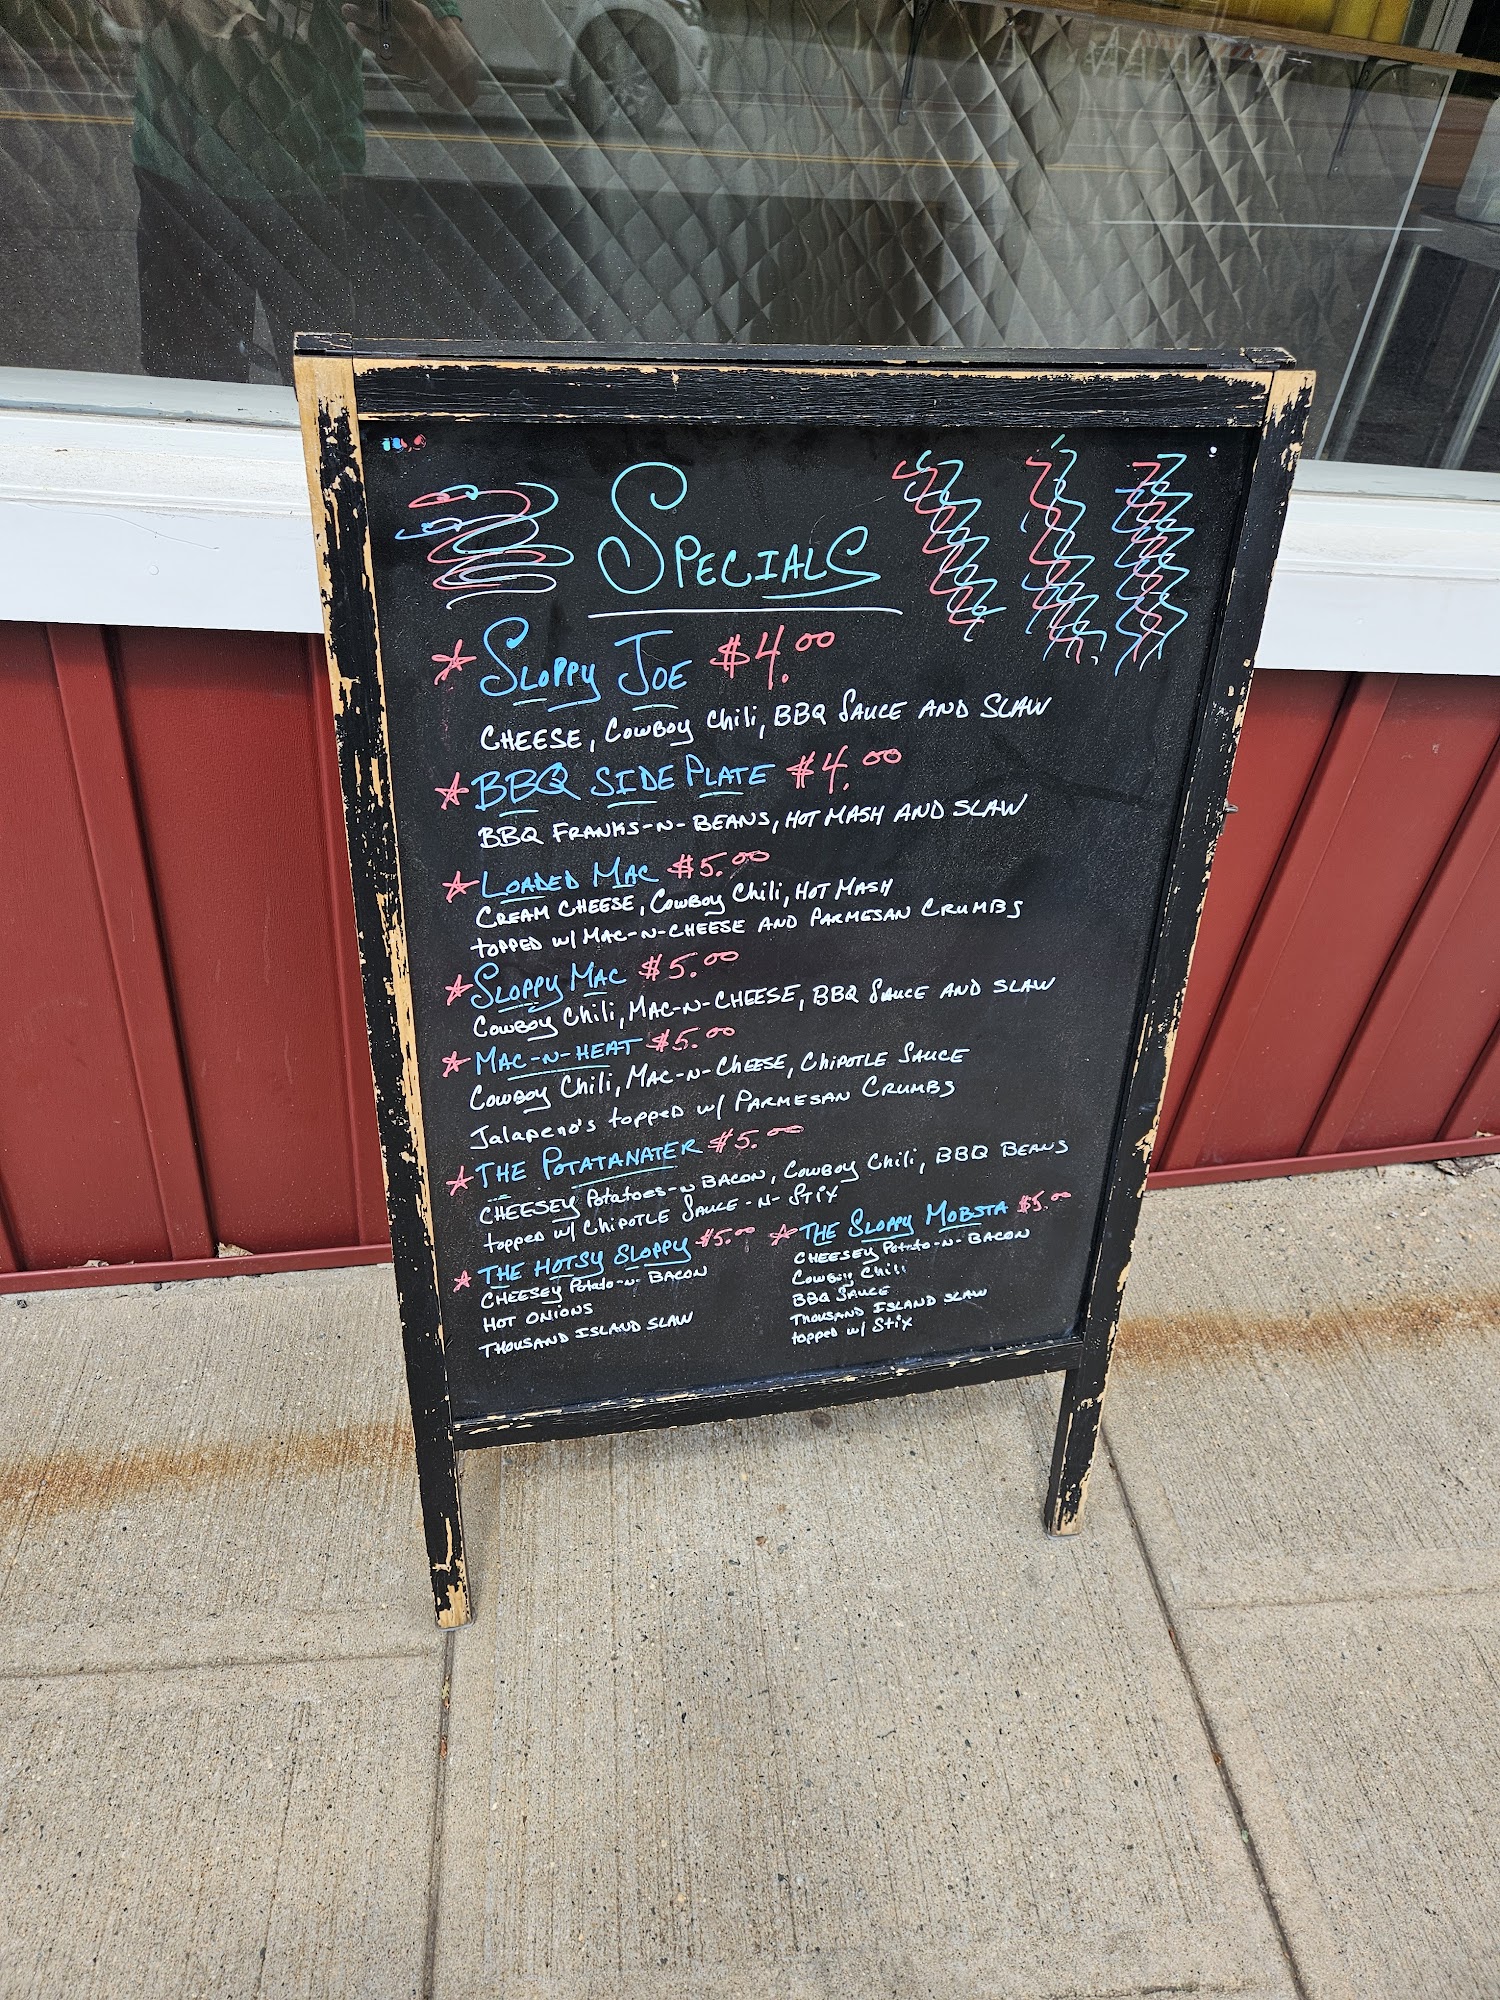 Specials
Sloppy Joe $4.00
Cheese, Cowboy Chili, BBQ Sauce and Slaw
BBQ Side Plate $4.00
BBQ Franks-n-Beans, Hot Mash and Slaw
Loaded Mac $5.00
Cream Cheese, Cowboy Chili, Hot Mash
topped w/ Mac-n-Cheese and Parmesan Crumbs
Sloppy Mac $5.00
Cowboy Chili, Mac-n-Cheese, BBQ Sauce and Slaw
Mac-n-Heat $5.00
Cowboy Chili, Mac-n-Cheese, Chipotle Sauce
Jalapeno's topped w/ Parmesan Crumbs
The Potatanater $5.00
Cheesey Potatoes-n Bacon, Cowboy Chili, BBQ Beans
topped w/ Chipotle Sauce-n-Stix
The Hotsy Sloppy $5.00
Cheesey Potato-n-Bacon
Hot Onions
Thousand Island Slaw
The Sloppy Mobsta $5.00
Cheesey Potato-n-Bacon
Cowboy Chili
BBQ Sauce
Thousand Island Slaw
topped w/ Stix